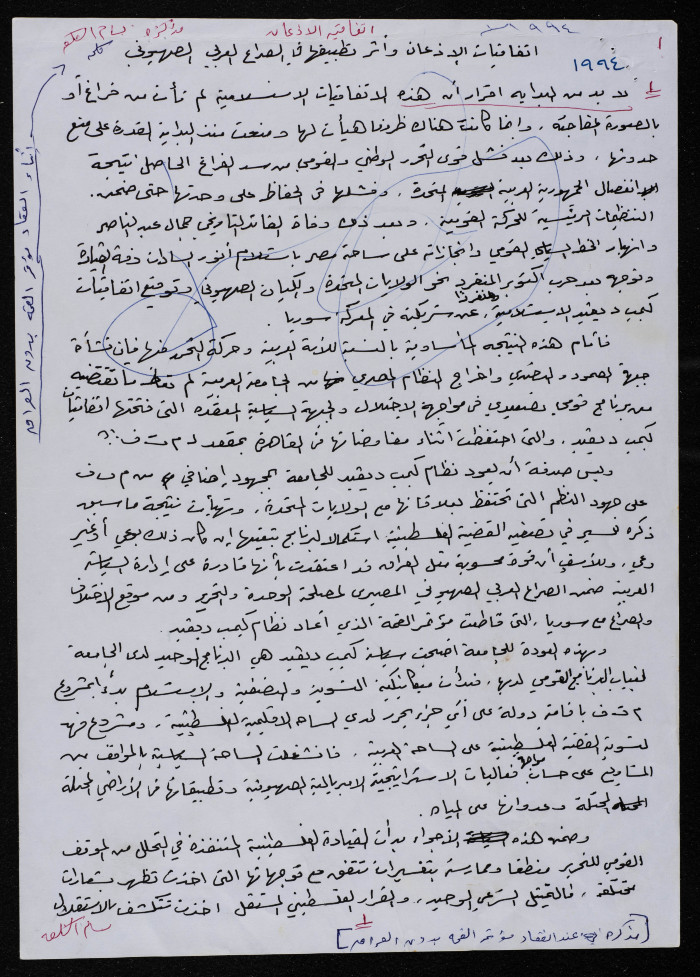 ١٩٩٤
اتفاقية الاذعان
مذكرة بسام
١
اتفاقيات الإذعان وأثر تطبيقها في الصراع العربي الصهيوني
١٩٩٤
لا بد من البداية اقرار أن هذه الاتفاقيات الاستسلامية لم تأت من فراغ أو
بالصورة المفاجئة، وانما كانت هناك ظروفا هيأت لها ومنعت منذ البداية القدرة على منع
حدوثها، وذلك بعد فشل قوى التحرر الوطني والقومي من سد الفراغ الحاصل نتيجة
انفصال الجمهورية العربية المتحدة، وفشلها في الحفاظ على وحدتها حتى ضمن
التنظيمات الرئيسية للحركة القومية. وبعد ذلك وفاة القائد التاريخي جمال عبد الناصر
وانهيار الخط القومي وانجازاته على ساحة مصر باستلام أنور السادات دفة القيادة
وتوجهه بعد حرب اكتوبر المنفرد نحو الولايات المتحدة والكيان الصهيوني وتوقيع اتفاقيات
كمب ديفيد الاستسلامية، منفردا عن شريكته في المعركة سوريا.
فأمام هذه النتيجة المأساوية بالنسبة للأمة العربية وحركة التحرر فيها فإن نشأة
جبهة الصمود والتصدي واخراج النظام المصري من الجامعة العربية لم تغط ما تقتضيه
من برنامج قومي تصعيدي في مواجهة الاحتلال والجبهة السياسية المنفردة التي فتحتها اتفاقيات
كمب ديفيد، والتي احتفظت أثناء مفاوضاتها في القاهرة بمقعد لـ م ت ف ؟!
وليس صدفة أن يعود نظام كمب ديفيد للجامعة بمجهود إضافي من م ت ف
على جهود النظم التي تحتفظ بعلاقاتها مع الولايات المتحدة، وتهيأت نتيجة ما سبق
ذكره لتسير في تصفية القضية الفلسطينية استكمالا لبرنامج تتبعها إن كان ذلك بوعي أو غير
وعي، وللأسف أن قوة محسوبة مثل العراق قد اعتقدت بأنها قادرة على إدارة السياسة
العربية ضمن الصراع العربي الصهيوني المصيري لمصلحة الوحدة والتحرير ومن موقع الاختلاف
والصراع مع سوريا، التي قاطعت مؤتمر القمة الذي أعاد نظام كمب ديفيد.
وبهذه العودة للجامعة أضحت سياسة كمب ديفيد هي البرنامج الوحيد لدى الجامعة
لغياب البرنامج القومي لديها. فبدأت ميكانيكية التسوية والتصفية والاستسلام بدءا بمشروع
م ت ف باقامة دولة على أي جزء يحرر لدى الساحة الاقليمية الفلسطينية، ومشروع فهد
لتسوية القضية الفلسطينية على الساحة العربية. فانشغلت الساحة السياسية بالمواقف من
المشاريع على حساب مواجهة فعاليات الاستراتيجية الامبريالية الصهيونية وتطبيقاتها في الأراضي المحتلة
وعدوانها على المياه.
وضمن هذه الأجواء بدأت القيادة الفلسطينية المتنفذة في التحلل من الموقف
القومي للتحرير منطقا وممارسة بتفسيرات تتفق مع توجهاتها التي أخذت تظهر بشعارات
مختلفة. فالتمثيل الشرعي الوحيد، والقرار الفلسطيني المستقل أخذت تتكشف بالاستقلال
١
[مذكرة عند انعقاد مؤتمر القمة بدون العراق]
أثناء انعقاد مؤتمر القمة بدون العراق